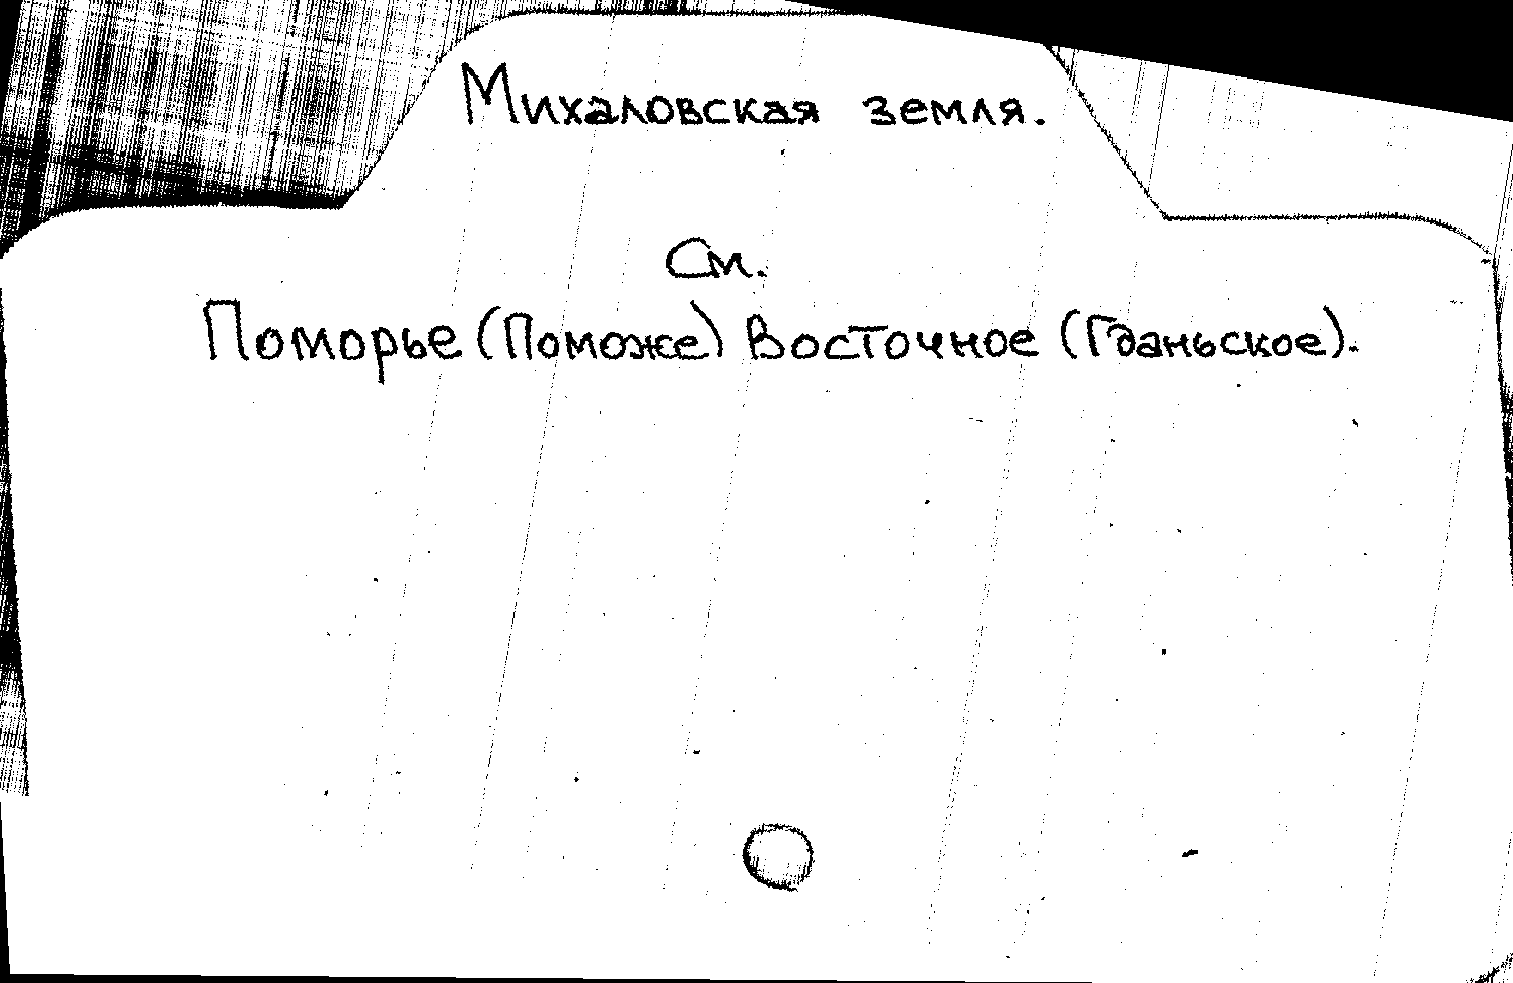 Михаловская земля.
См.
Поморье (Поможе) Восточное (Гданьское).